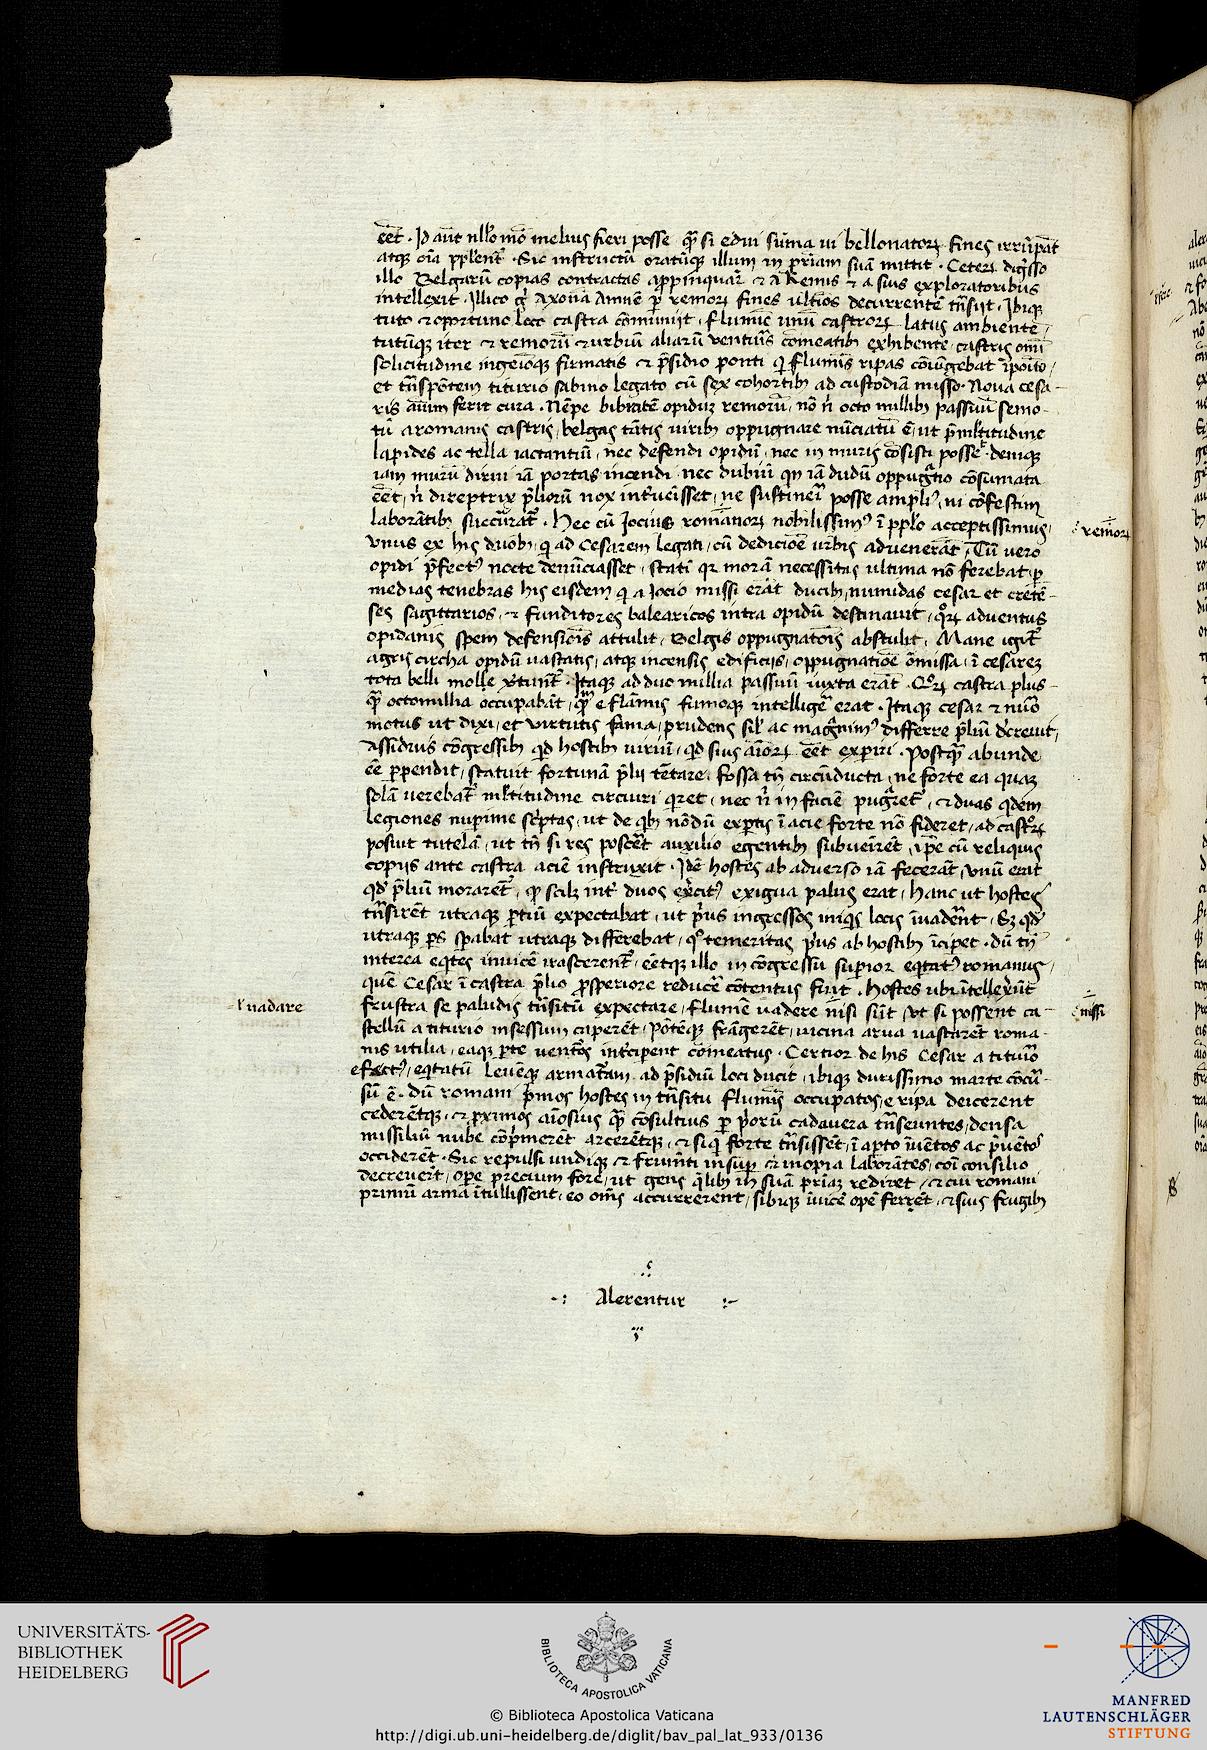 eēt · Id aūt nll̄o mō melius fieri posse qᷓ si edui sūma ui bellonatoꝝ fines irrūpāt
atqꝫ oīa ppl̄ent᷑ · Sic instructū oratūqꝫ illum in p̄riam suā mittit · Ceteꝝ digͥsso
illo Belgarū copias contractas appinquar̄ ⁊ a Remis ⁊ a suis exploratoribus
intellexit · Illico gͥ axonā amnē ꝑ remoꝝ fines ultīos decurrentē tn̄siit · Ibiqꝫ
tuto ⁊ oportuno loco castra cōmuniit · flumīe unū castroꝝ latus ambiente,
tutūqꝫ iter ⁊ remorū ⁊ urbiū aliarū ventur̄is cōmeatibꝫ exhibente · castris omī
solicitudine ingenioqꝫ firmatis ⁊ p̄sidio ponti qͥ flumīs ripas cōiūgebat īpoīto,
et tn̄spōtem titurio sabino legato cū sex cohortibꝫ ad custodiā misso · Noua cesa-
ris aīum ferit cura · Nēpe bibractē opiduꝫ remorū, nō n̄ octo millibꝫ passuū semo-
tū a romanis castris, belgas tātis uiribꝫ oppugnare nūciatū ē, ut p̄ ml̄titudine
lapides ac tella iactantiū, nec defendi opidū, nec in muris cōsisti posset · deniqꝫ
iam murū dirui iā portas incendi nec dubiū qn iā dudū oppugͣtio cōsumata
eēt, n̄ direptrix p̄liorū nox int᷑uenīsset, ne sustineri posse ampliꝰ, ni cōfestim
laborātibꝫ succurrāt᷑ · Hec cū Jocius romanoꝝ nobilissimꝰ ī pplo acceptissimus,
remoꝝ
vnus ex his duobꝫ, qͥ ad Cesarem legati, cū dedicioē urbis aduenerāt, Tū uero
opidi p̄fectꝰ nocte denūciasset, stati qꝛ morā necessitas ultima nō ferebat, ꝑ
medias tenebras his eisdem qͥ a Jocio missi erāt ducibꝫ, numidas cesar et cretē-
ses sagittarios, ⁊ funditores balearicos intra opidū destinauit, qͦꝝ aduentus
opidanis spem defensiōis attulit, Belgis oppugnatōis abstulit, Mane igit᷑
agris circha opidū uastatis, atqꝫ incensis edificijs, oppugnatiōe ōmissa, ī cesareꝫ
tota belli molle v̓tunt᷑ · Itaqꝫ ad duo millia passuū iuxta erāt · Qͦꝝ castra plus-
qᷓ octomillia occupabāt, qᷓꝫ e flāmis fumoqꝫ intelligē erat · Itaqꝫ cesar ⁊ nūo
motus ut dixi, et virtutis fama, prudens sil̄ ac magͣnimꝰ differre p̄liū dcreuit,
assiduis cōgressibꝫ qd hostibꝫ uiriū, qd suis aīoꝝ eēt experiri · Postqᷓ abunde
eē ꝑpendit, statuit fortunā p̄lii tētare · fossa tn̄ circūducta, ne forte ea quaꝫ
solā uerebat᷑ ml̄titudine circuiri qͥret, nec n̄ in faciē pugͣret᷑, ⁊ duas qͥdem
legiones nuꝑime sc̄ptas, ut de qͥbꝫ nōdū exꝑtis ī acie forte nō fideret, ad castroꝝ
posuit tutelā, ut tn̄ si res poscēt auxilio egentibꝫ subuenīrēt, ip̄e cū reliquis
copijs ante castra aciē instruxit · Idē hostes ab aduerso iā fecerāt, vnū erat
qd̓ p̄liū morarēt᷑, qͥ scilꝫ int᷑ duos exercitꝰ exigua palus erat, hanc ut hostes
tn̄sirēt utraqꝫ ꝑtiū expectabat, ut pͥus ingressos iniqͥs locis īuadēnt, Sꝫ qd̓
utraqꝫ ꝑs sꝑabat utraqꝫ differebat, qͦ temeritas pͥus ab hostibꝫ īciꝑet · dū tn̄
interea eqͥtes inuicē irascerent᷑, eētqꝫ illo in cōgressū suꝑior eqͥtatꝰ romanus,
quē Cesar ī castra p̄lio ꝓsperiore reducē cōtentus fuit · Hostes ubi ītellexer̄ūt
l' uadare
frustra se paludis tn̄sitū expectare, flumē uadere nīsi sūt, vt si possent ca-
missi
stellū a titurio insessum caperēt, pōtēqꝫ frāgerēt, uicina arua uastarēt roma-
nis utilia, eaqꝫ ꝑte uentōs int᷑ciꝑent cōmeatus · Certior de his Cesar a titurio
efectꝰ, eqͥtatū leuēqꝫ armatͣam ad p̄sidiū loci ducit, ibiqꝫ durissimo marte cōcur-
sū ē · dū romani pͥmos hostes in tn̄situ flumīs occupatos, e ripa deicerent
cederētqꝫ, ⁊ ꝓximos aīosius qᷓ cōsultius ꝑ pͥorū cadauera tn̄seuntes, densa
missiliū nube cōpͥmerēt arcerētqꝫ, ⁊ siqͥ forte tn̄sissēt, ī aꝑto īuētos ac p̄uētos
occiderēt · Sic repulsi undiqꝫ ⁊ frumēti insuꝑ ⁊ inopia laborātes, cōi consilio
decreuer̄t, opē precium fore, ut gens qͥlibꝫ in suā pͣriaꝫ rediret, ⁊ cui romani
primū arma ītulissent, eo om̄s accurrerent, sibiqꝫ īuicē opē ferrēt, ⁊ suis frugibꝫ
Alerentur
UNIVERSITÄTS-
BIBLIOTHEK
HEIDELBERG
BIBLIOTECA APOSTOLICA VATICANA
© Biblioteca Apostolica Vaticana
http://digi.ub.uni-heidelberg.de/diglit/bav_pal_lat_933/0136
MANFRED
LAUTENSCHLÄGER
STIFTUNG